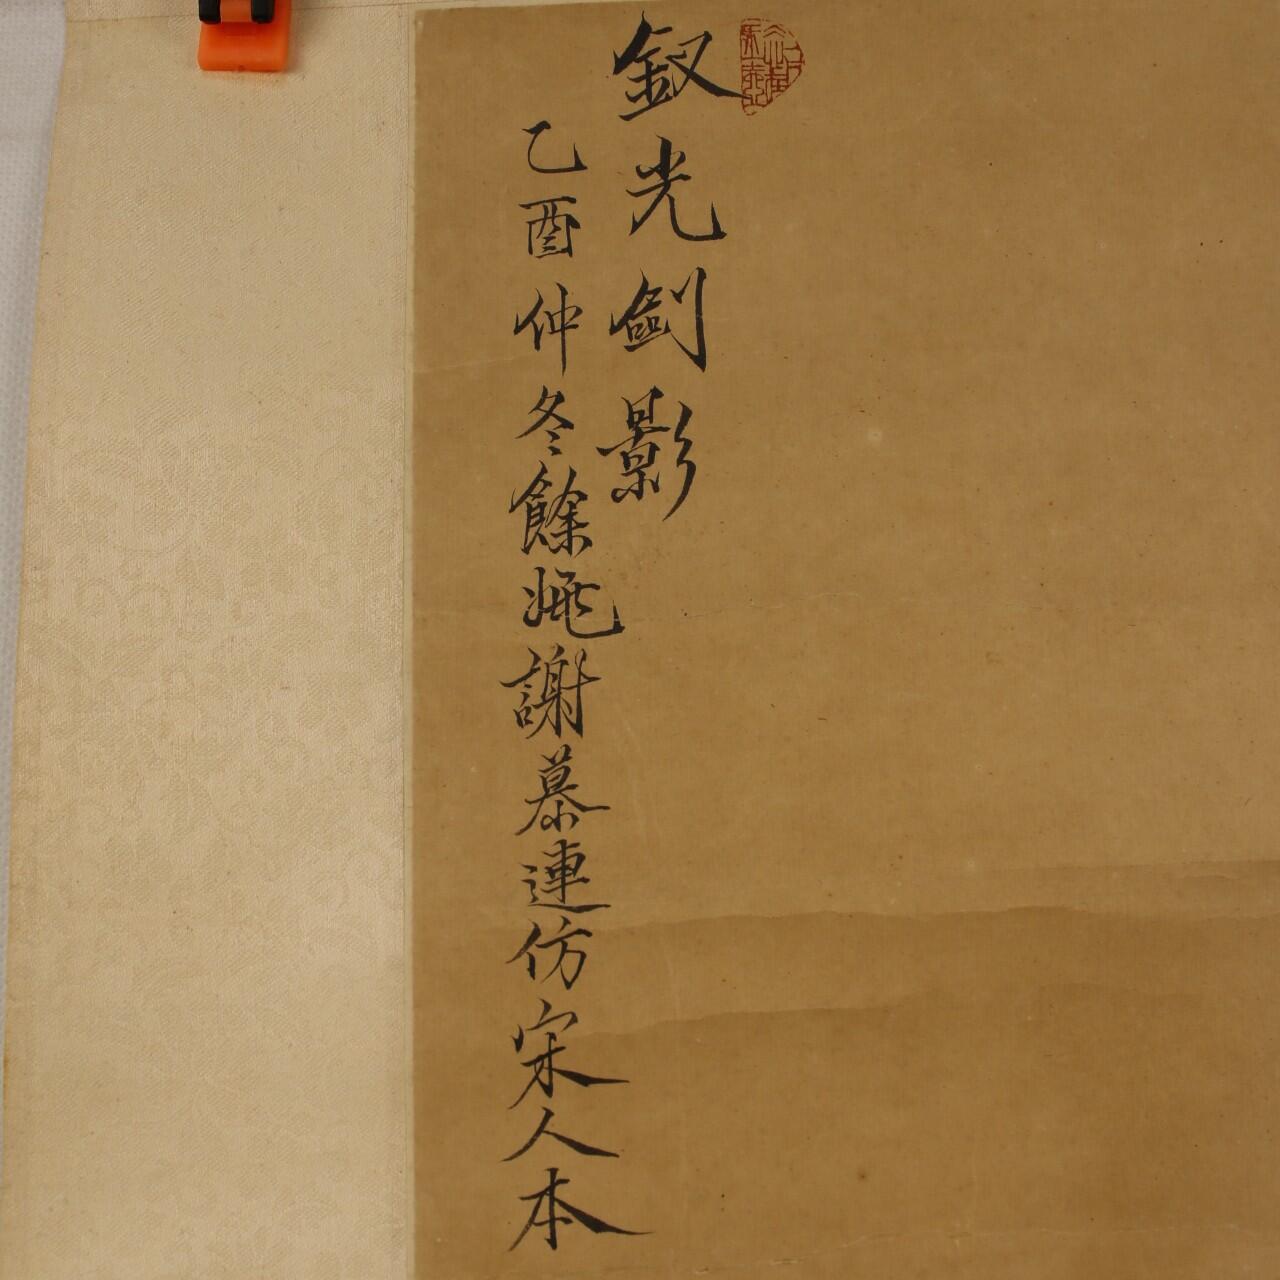 釵光劍影
乙酉仲冬餘姚謝慕連仿宋人本